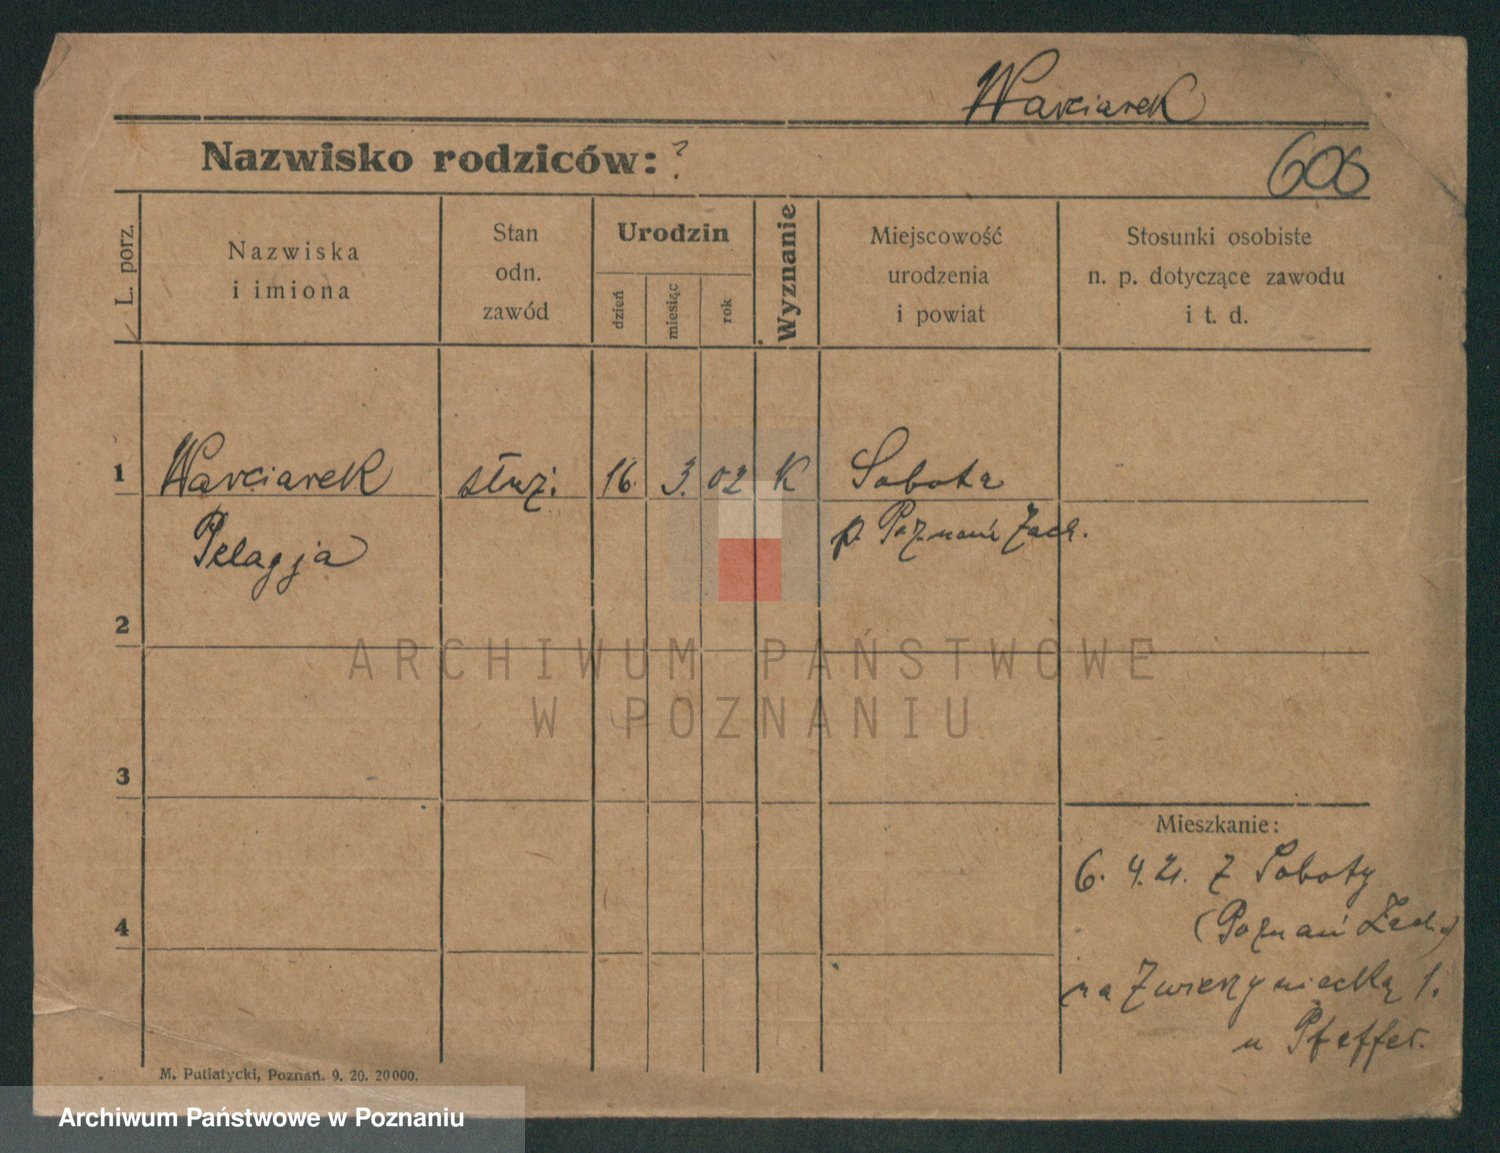 Warciarek
Nazwisko rodziców: ?
606
L. porz.
Nazwiska
i imiona
Stan
odn.
zawód
Urodzin
dzień
miesiąc
rok
Wyznanie
Miejscowość
urodzenia
i powiat
Stosunki osobiste
n. p. dotyczące zawodu
i t. d.
1
Warciarek
służ:
16.
3.
02
K
Sobota
Pelagja
p. Poznań Zach.
2
ARCHIWUM PAŃSTWOWE
W POZNANIU
3
Mieszkanie:
6. 4. 21. z Soboty
(Poznań Zach.)
4
na Zwierzyniecką 1.
u Pfeffer.
M. Putiatycki, Poznań. 9. 20. 20000.
Archiwum Państwowe w Poznaniu